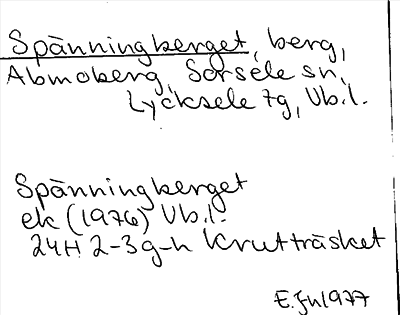 Spänningberget, berg,
Abmoberg, Sorsele sn,
Lycksele tg, Vb.l.
Spänningberget
ek (1976) Vb.l.
24H 2-3g-h Krutträsket
E.Jn 1977